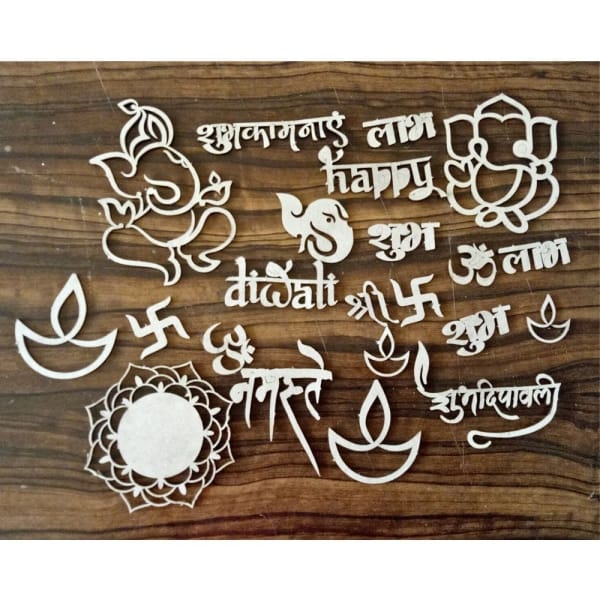 शुभकामनाएं लाभ
happy
शुभ
ॐ लाभ
diwali श्री
शुभ
ॐ
नमस्ते
शुभदिपावली